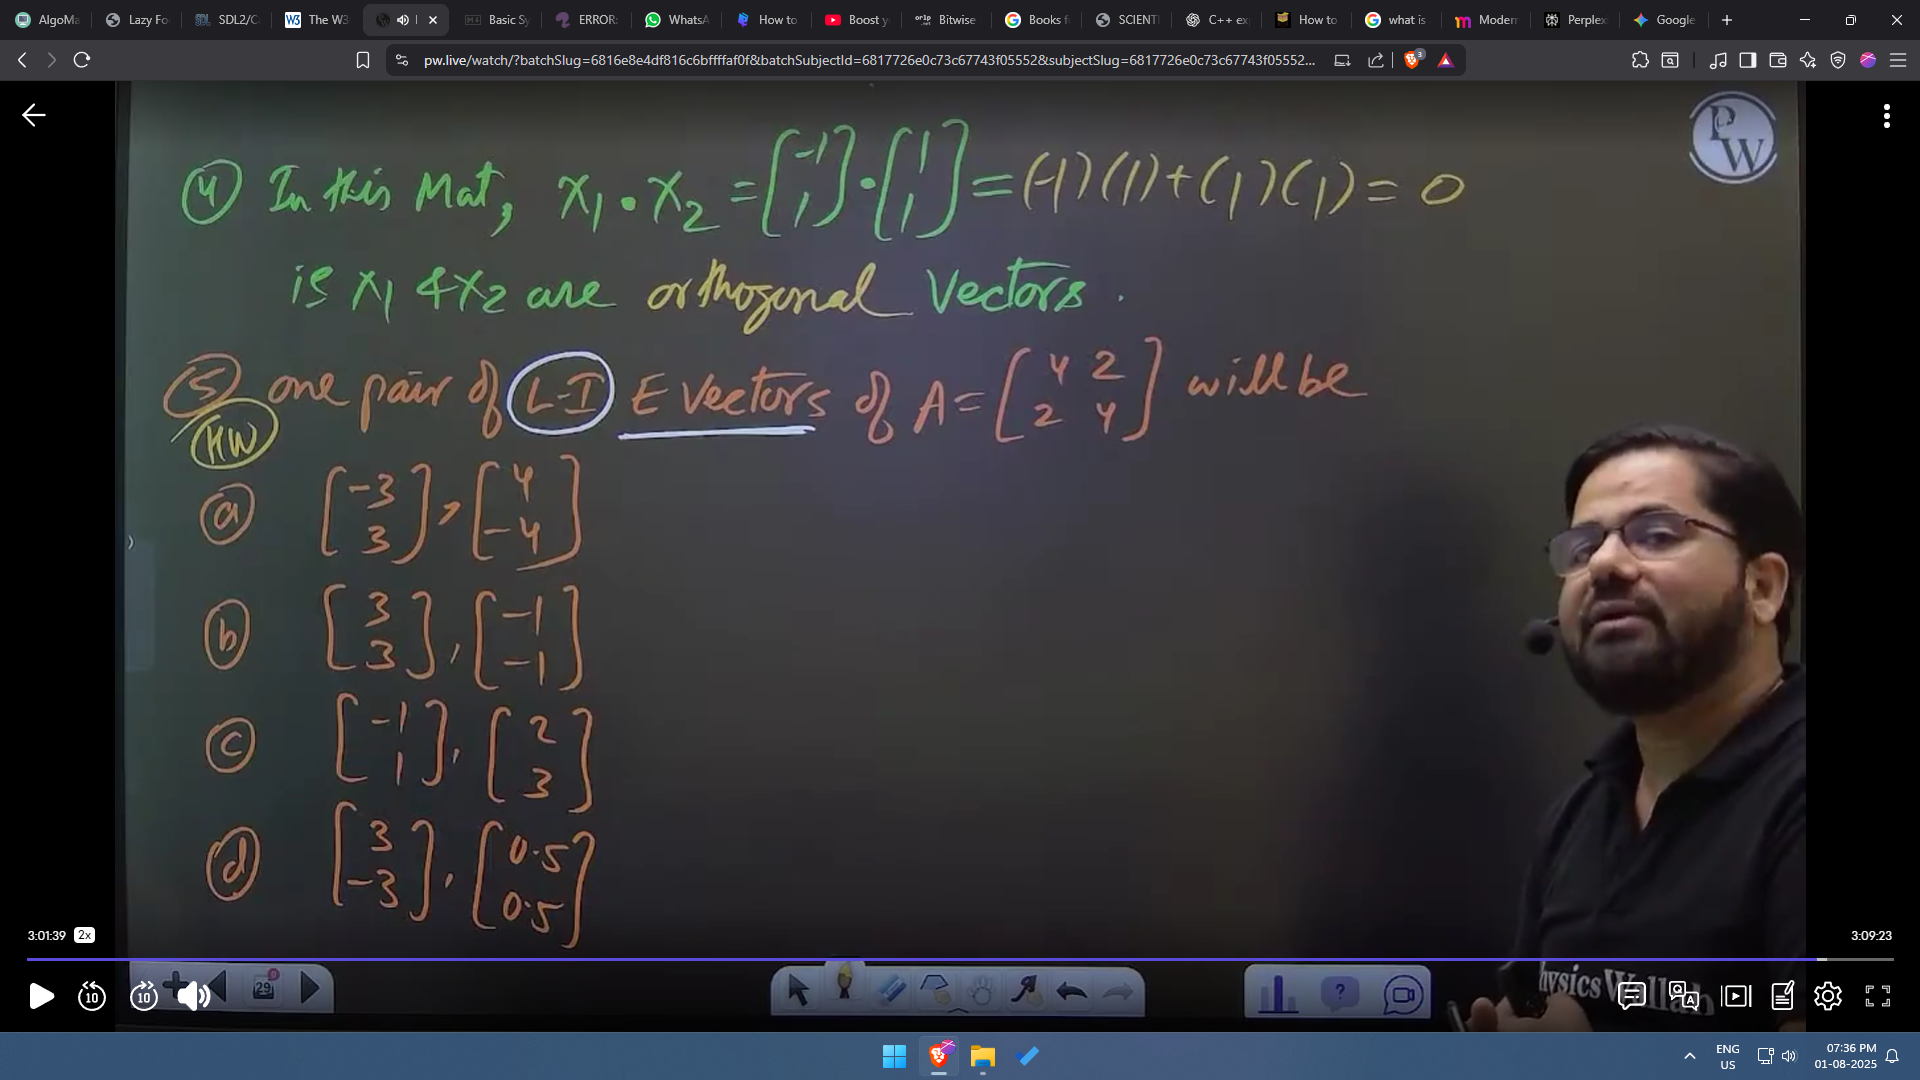 AlgoMa
Lazy Fo
SDL2/C
The W3
Basic Sy
ERROR:
WhatsA
How to
Boost y
Bitwise
Books f
SCIENTI
C++ ex
How to
what is
Modern
Perplex
Google
pw.live/watch/?batchSlug=6816e8e4df816c6bffffaf0f&batchSubjectId=6817726e0c73c67743f05552&subjectSlug=6817726e0c73c67743f05552...
3
PW
④ In this Mat, X₁ • X₂ = [-1 1] • [1 1] = (-1)(1)+(1)(1) = 0
ie X₁ & X₂ are orthogonal Vectors.
⑤ one pair of L-I E Vectors of A = [4 2; 2 4] will be
HW
ⓐ [-3 3], [4 -4]
ⓑ [3 3], [-1 -1]
ⓒ [-1 1], [2 3]
ⓓ [3 -3], [0.5 0.5]
3:01:39 2x
3:09:23
10
10
29
Physics Wallah
ENG
US
07:36 PM
01-08-2025